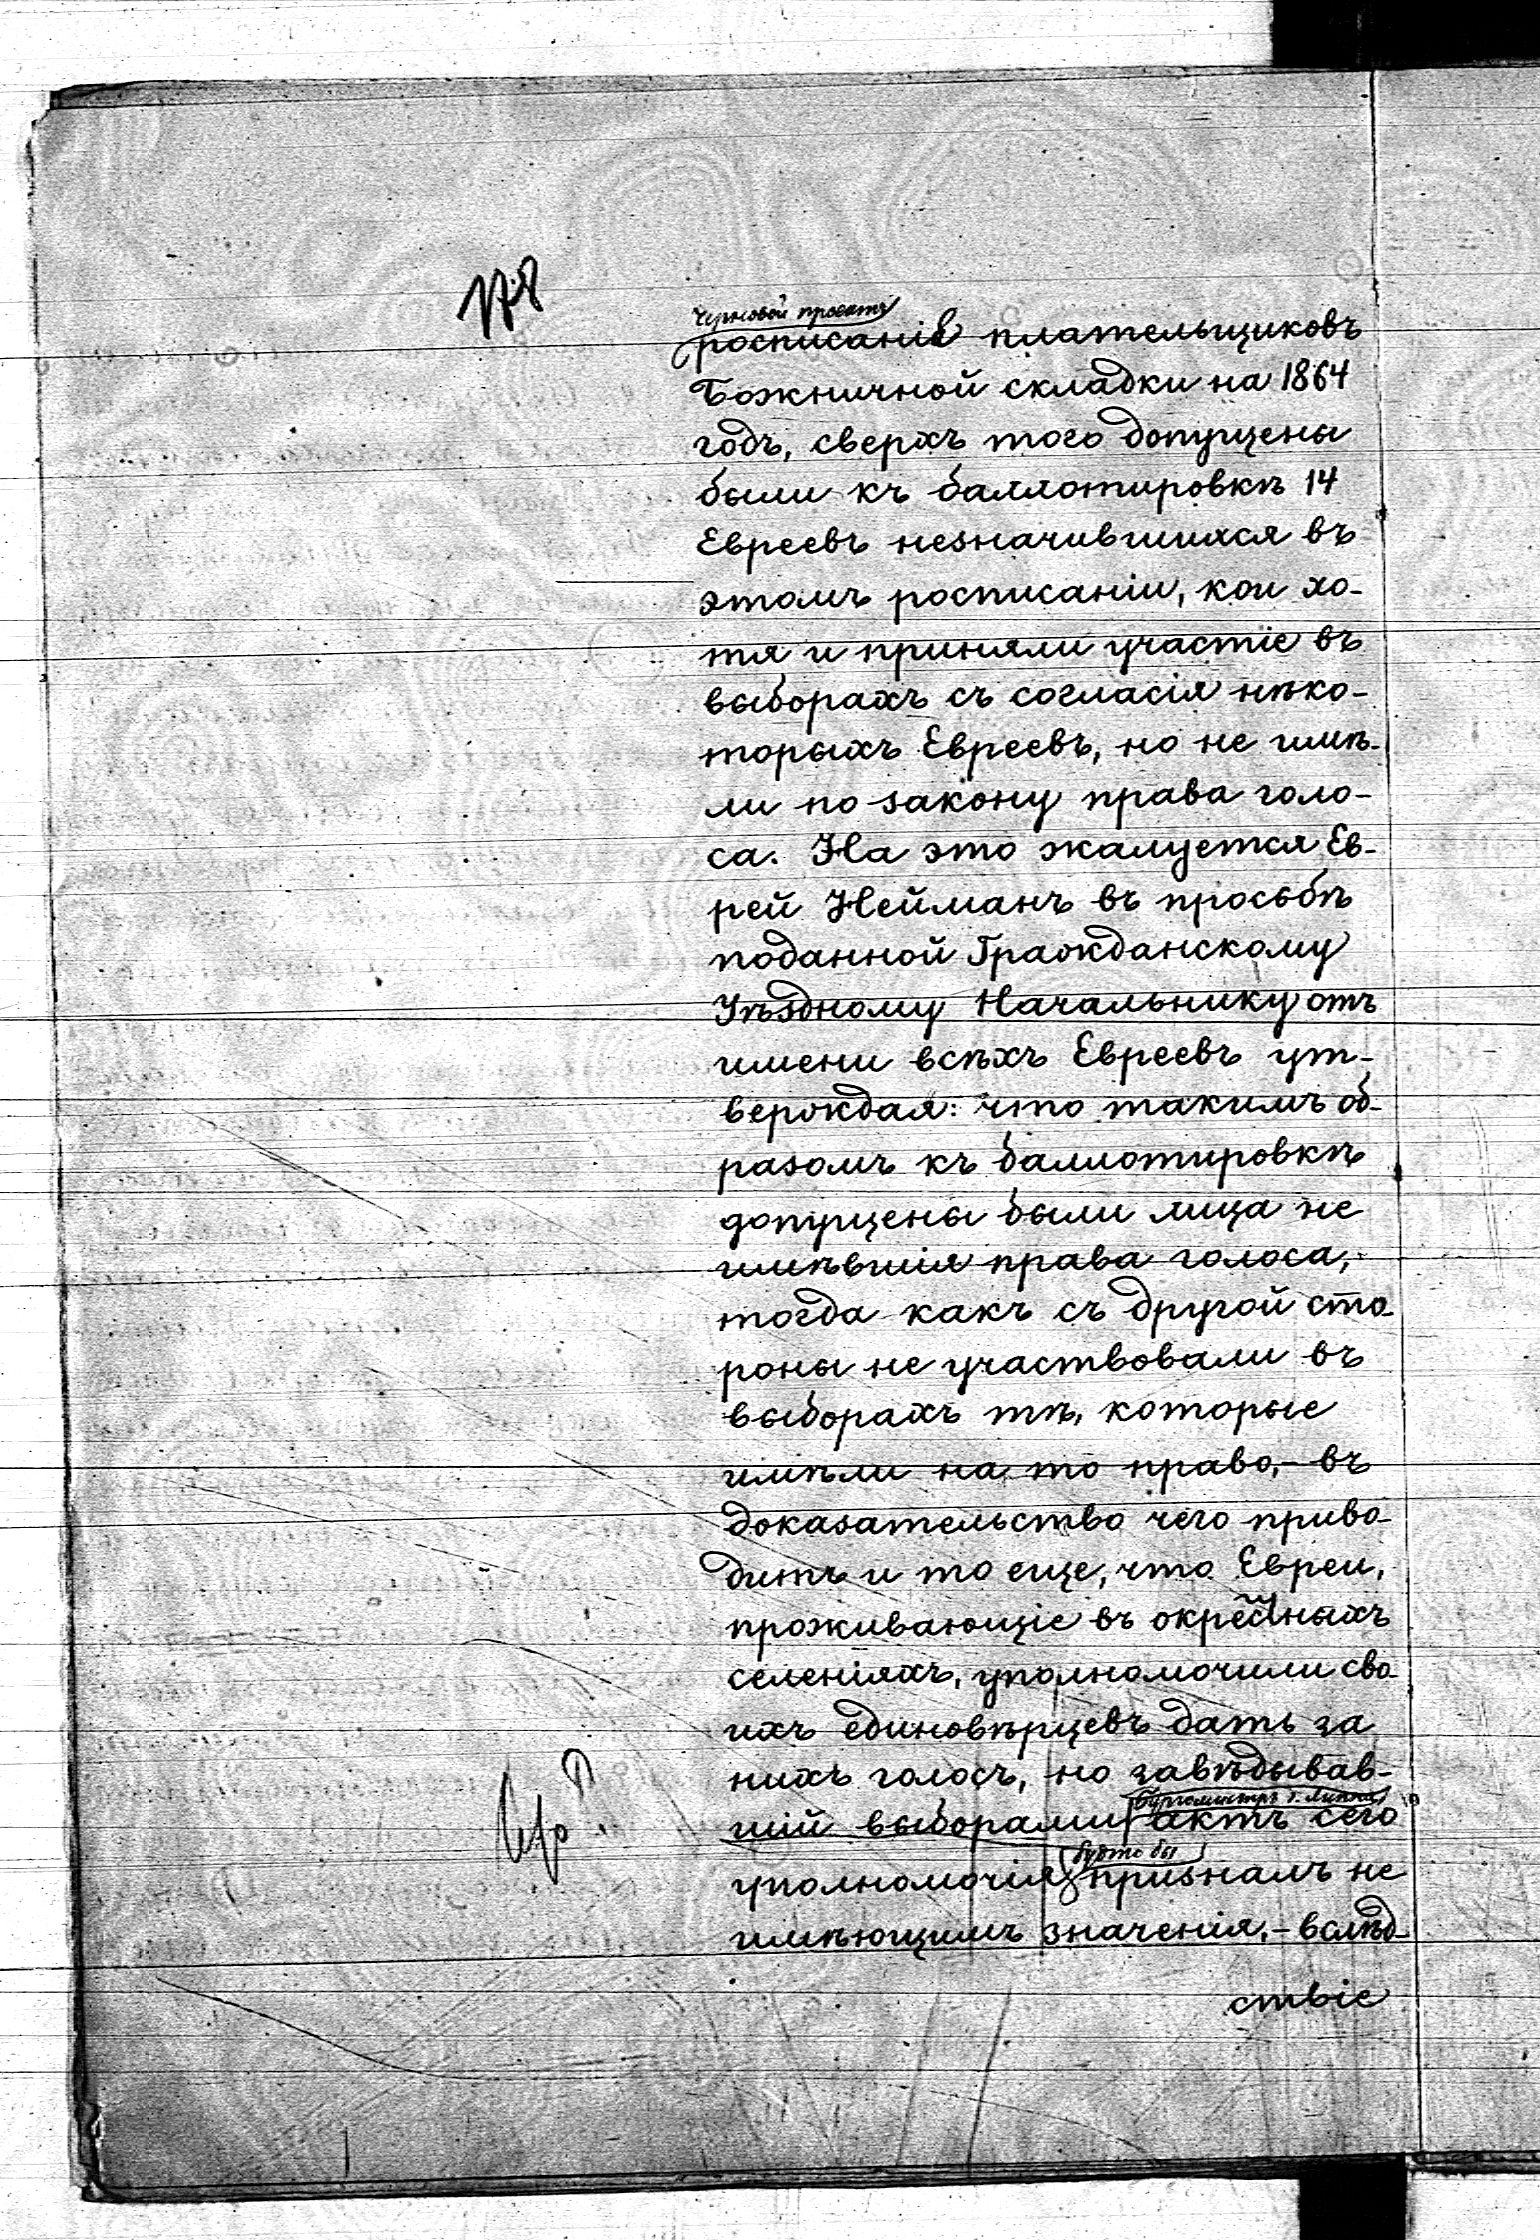 черновой проектъ
росписанія плательщиковъ
Божничной складки на 1864
годъ, сверхъ того допущены
были къ баллотировкѣ 14
Евреевъ незначившихся въ
этомъ росписаніи, кои хо-
тя и приняли участіе въ
выборахъ съ согласія нѣко-
торыхъ Евреевъ, но не имѣ-
ли по закону права голо-
са. На это жалуется Ев-
рей Нейманъ въ просьбѣ
поданной Гражданскому
Уѣздному Начальнику отъ
имени всѣхъ Евреевъ ут-
верждая: что такимъ об-
разомъ къ баллотировкѣ
допущены были лица не
имѣвшія права голоса,
тогда какъ съ другой сто-
роны не участвовали въ
выборахъ тѣ, которые
имѣли на то право,- въ
доказательство чего приво-
дитъ и то еще, что Евреи,
проживающіе въ окрестныхъ
селеніяхъ, уполномочили сво-
ихъ единовѣрцевъ дать за
нихъ голосъ, но завѣдывав-
бургомистръ г. Липна
шій выборами актъ сего
будто бы
уполномочія призналъ не
имѣющимъ значенія,- вслѣд-
ствіе